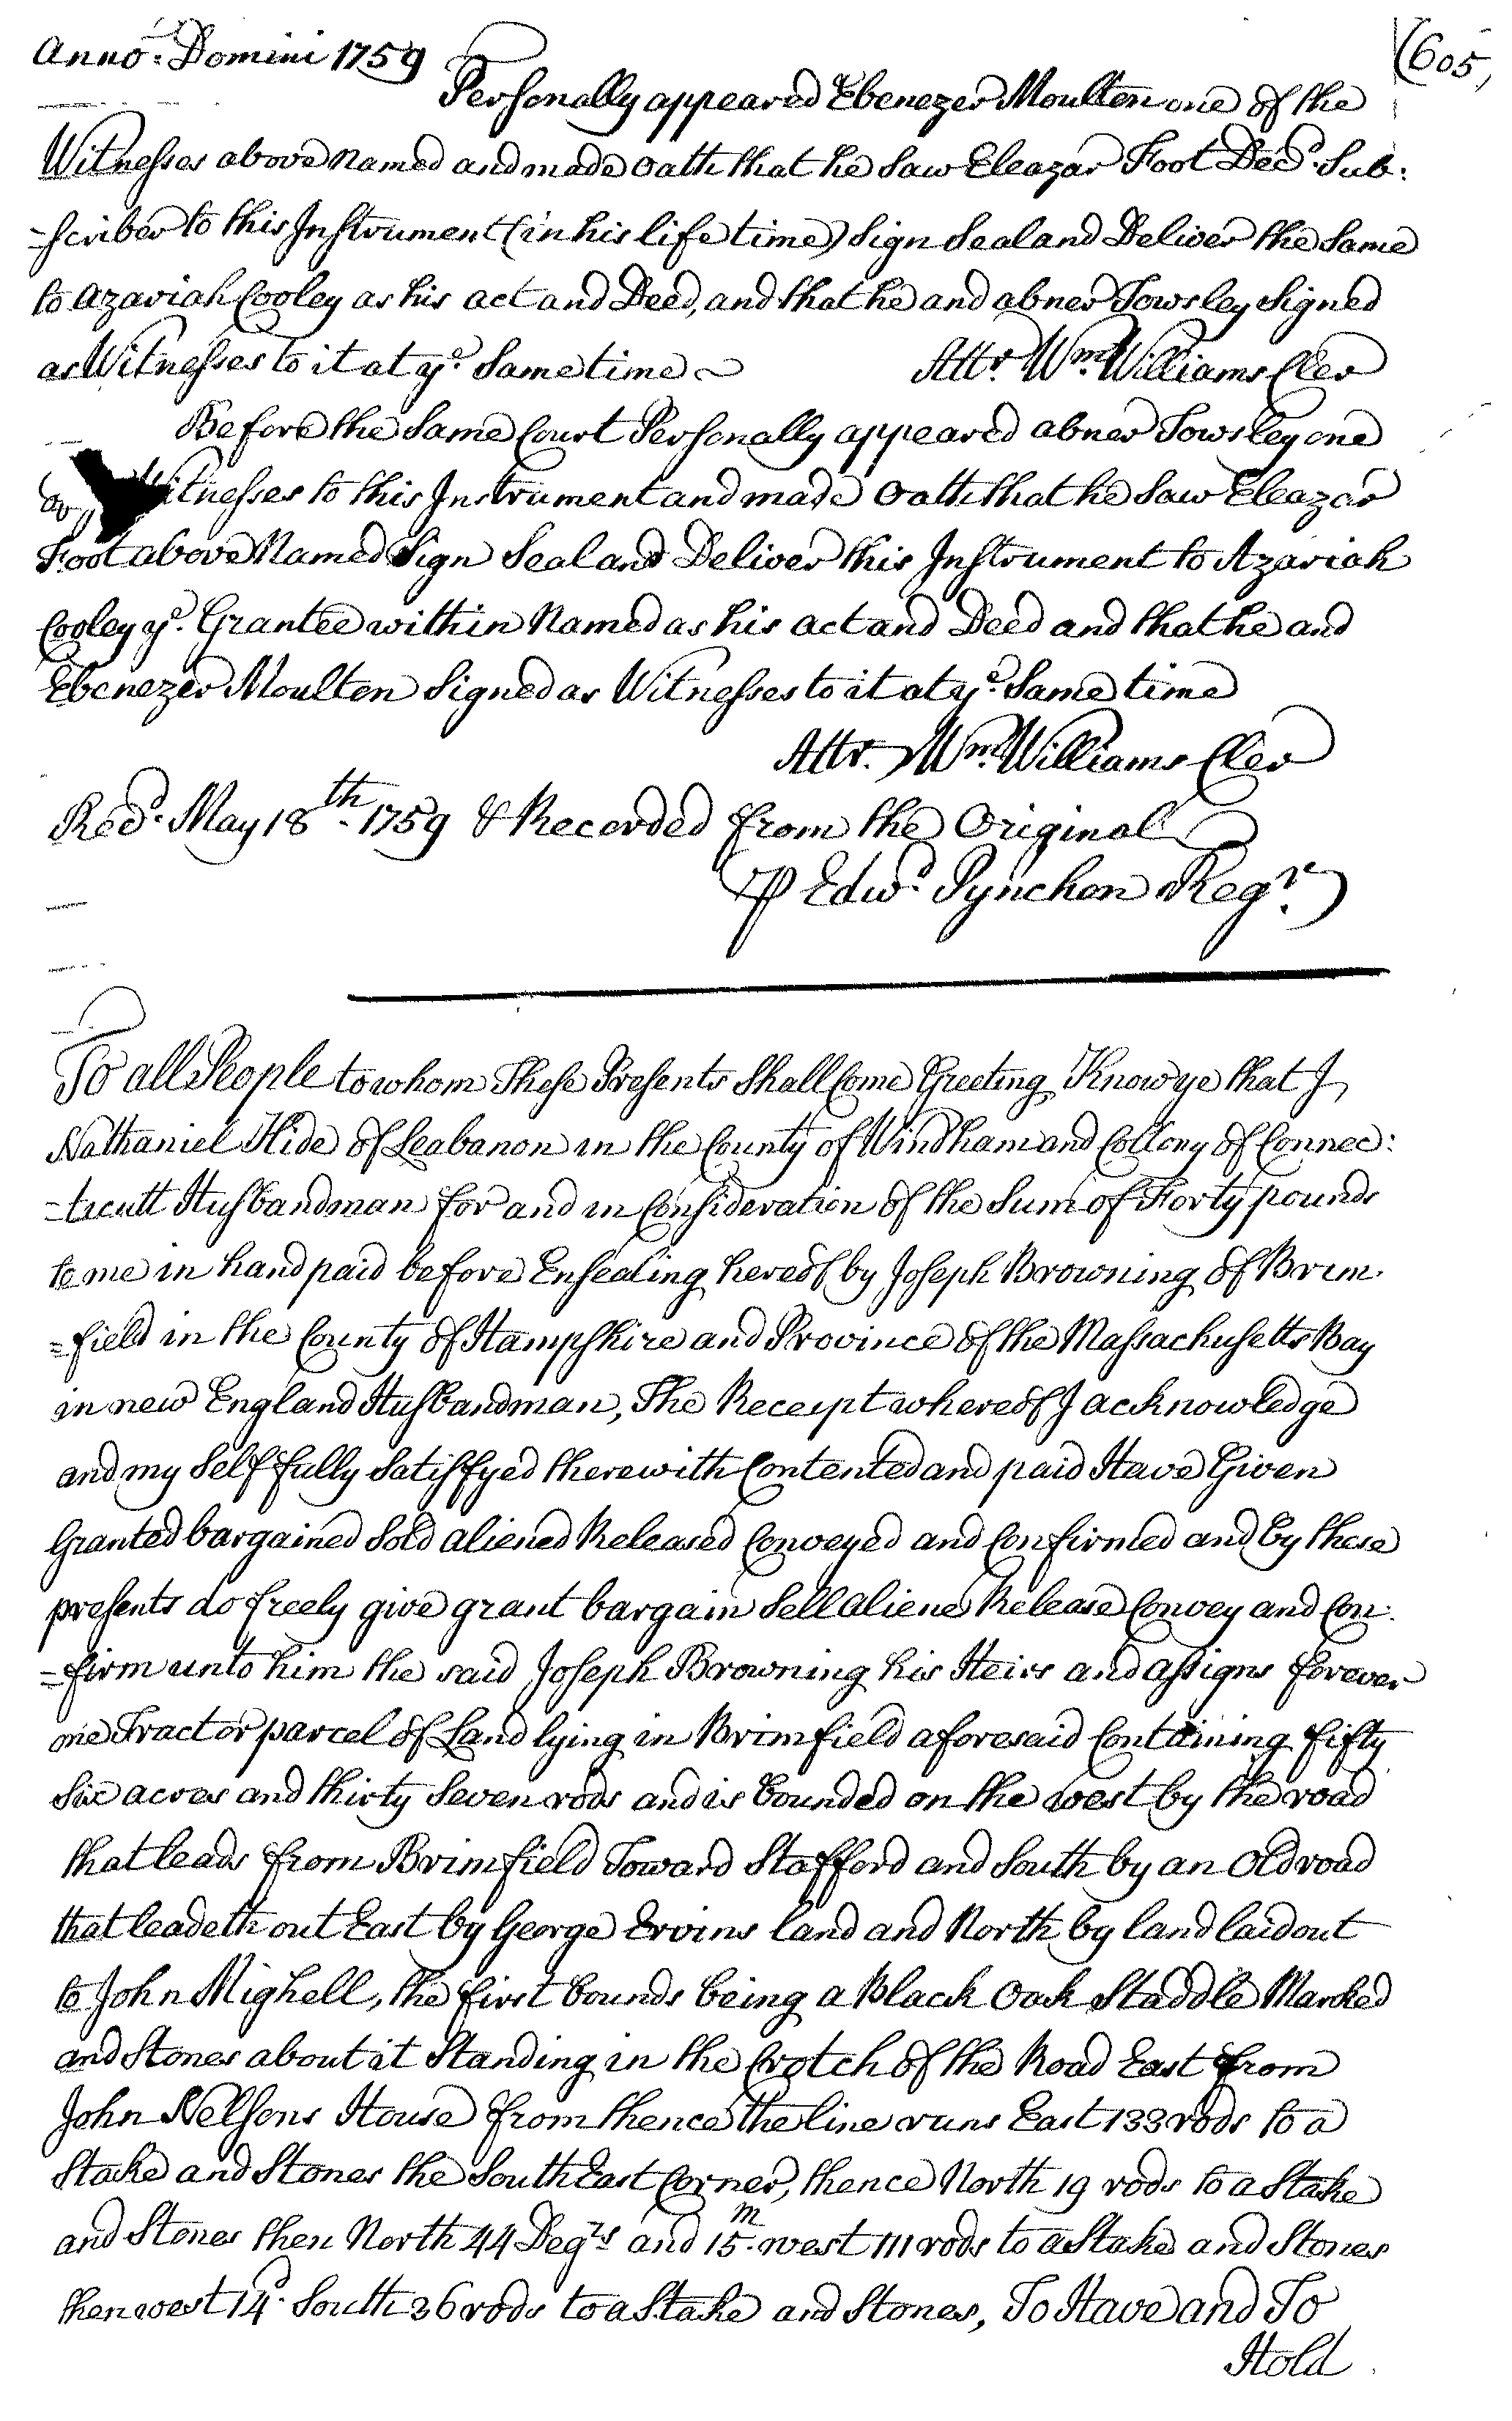 Anno: Domini 1759
(605)
Personally appeared Ebenezer Moulten one of the
Witnesses above Named and made Oath that he Saw Eleazar Foot Decd. Sub:
-scriber to this Instrument (in his life time) Sign Seal and Deliver the Same
to Azariah Cooley as his act and Deed, and that he and abner Towsley Signed
as Witnesses to it at ye. Same time
Attr. Wm. Williams Cler
Before the Same Court Personally appeared abner Towsley one
Witnesses to this Instrument and made Oath that he Saw Eleazar
Foot above Named Sign Seal and Deliver this Instrument to Azariah
Cooley ye. Grantee within Named as his act and Deed and that he and
Ebenezer Moulten Signed as Witnesses to it at ye. Same time
Attr. Wm. Williams Cler
Recd. May 18th. 1759 & Recorded from the Original
P Edwd. Pynchon Regr.
To all People to whom These Presents Shall Come Greeting Know ye that I
Nathaniel Hide of Leabanon in the County of Windham and Collony of Connec:
-ticutt Husbandman for and in Consideration of the Sum of Forty pounds
to me in hand paid before Ensealing hereof by Joseph Browning of Brim-
=field in the County of Hampshire and Province of the Massachusetts Bay
in new England Husbandman, The Receipt whereof I acknowledge
and my Self fully Satisfyed therewith Contented and paid Have Given
Granted bargained Sold aliened Released Conveyed and Confirmed and by these
presents do freely give grant bargain Sell aliene Release Convey and Con:
=firm unto him the said Joseph Browning his Heirs and assigns forever
one Tract or parcel of Land lying in Brimfield aforesaid Containing fifty
Six acres and thirty Seven rods and is bounded on the west by the road
that leads from Brimfield Toward Stafford and South by an Old road
that leadeth out East by George Ervins land and North by land laid out
to John Mighell, the first bounds being a Black Oak Staddle Marked
and Stones about it Standing in the Crotch of the Road East from
John Nelsons House from thence the line runs East 133 rods to a
Stake and Stones the South East Corner, thence North 19 rods to a Stake
and Stones then North 44 Degrs and 15m. west 111 rods to a Stake and Stones
then west 14d. South 36 rods to a Stake and Stones, To Have and To
Hold